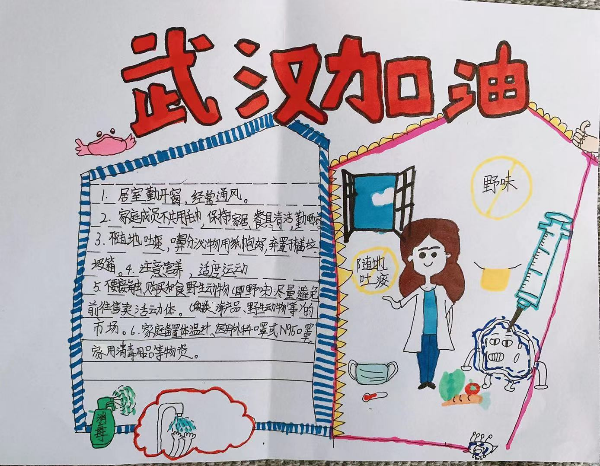 武汉加油
1. 居室勤开窗，经常通风。
2. 家庭成员不共用毛巾，保持家居、餐具清洁，勤晒
3. 不随地吐痰，口鼻分泌物用纸包好，弃置于垃圾
箱。4. 注意营养，适度运动
5. 不要接触、购买和食用野生动物（即野味）尽量避免
前往售卖活动体（禽类、海产品、野生动物等）的
市场。6. 家庭备置体温计、医用外科口罩或N95口罩、
家用消毒用品等物资。
野味
随地
吐痰
消毒